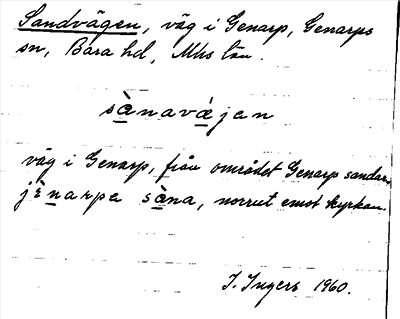 Sandvägen, väg i Genarp, Genarps
sn, Bara hd, Mhs län.
sànavájen
väg i Genarp, från området Genarp sandar,
jènarpa sàna, norrut emot kyrkan.
I. Ingers 1960.